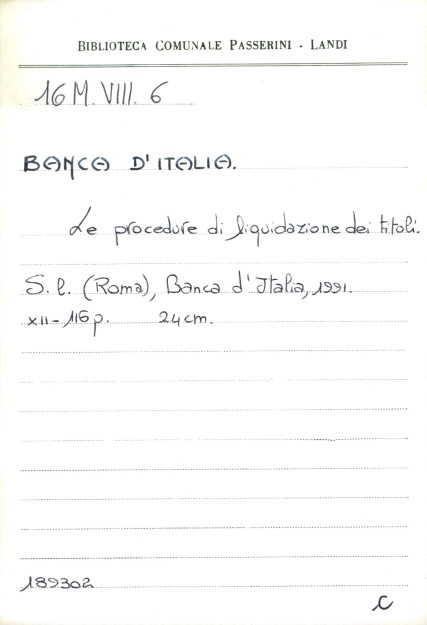 BIBLIOTECA COMUNALE PASSERINI - LANDI
16 M. VIII. 6
BANCA D'ITALIA.
Le procedure di liquidazione dei titoli.
S. l. (Roma), Banca d'Italia, 1991.
XII-116 p. 24 cm.
189302
C